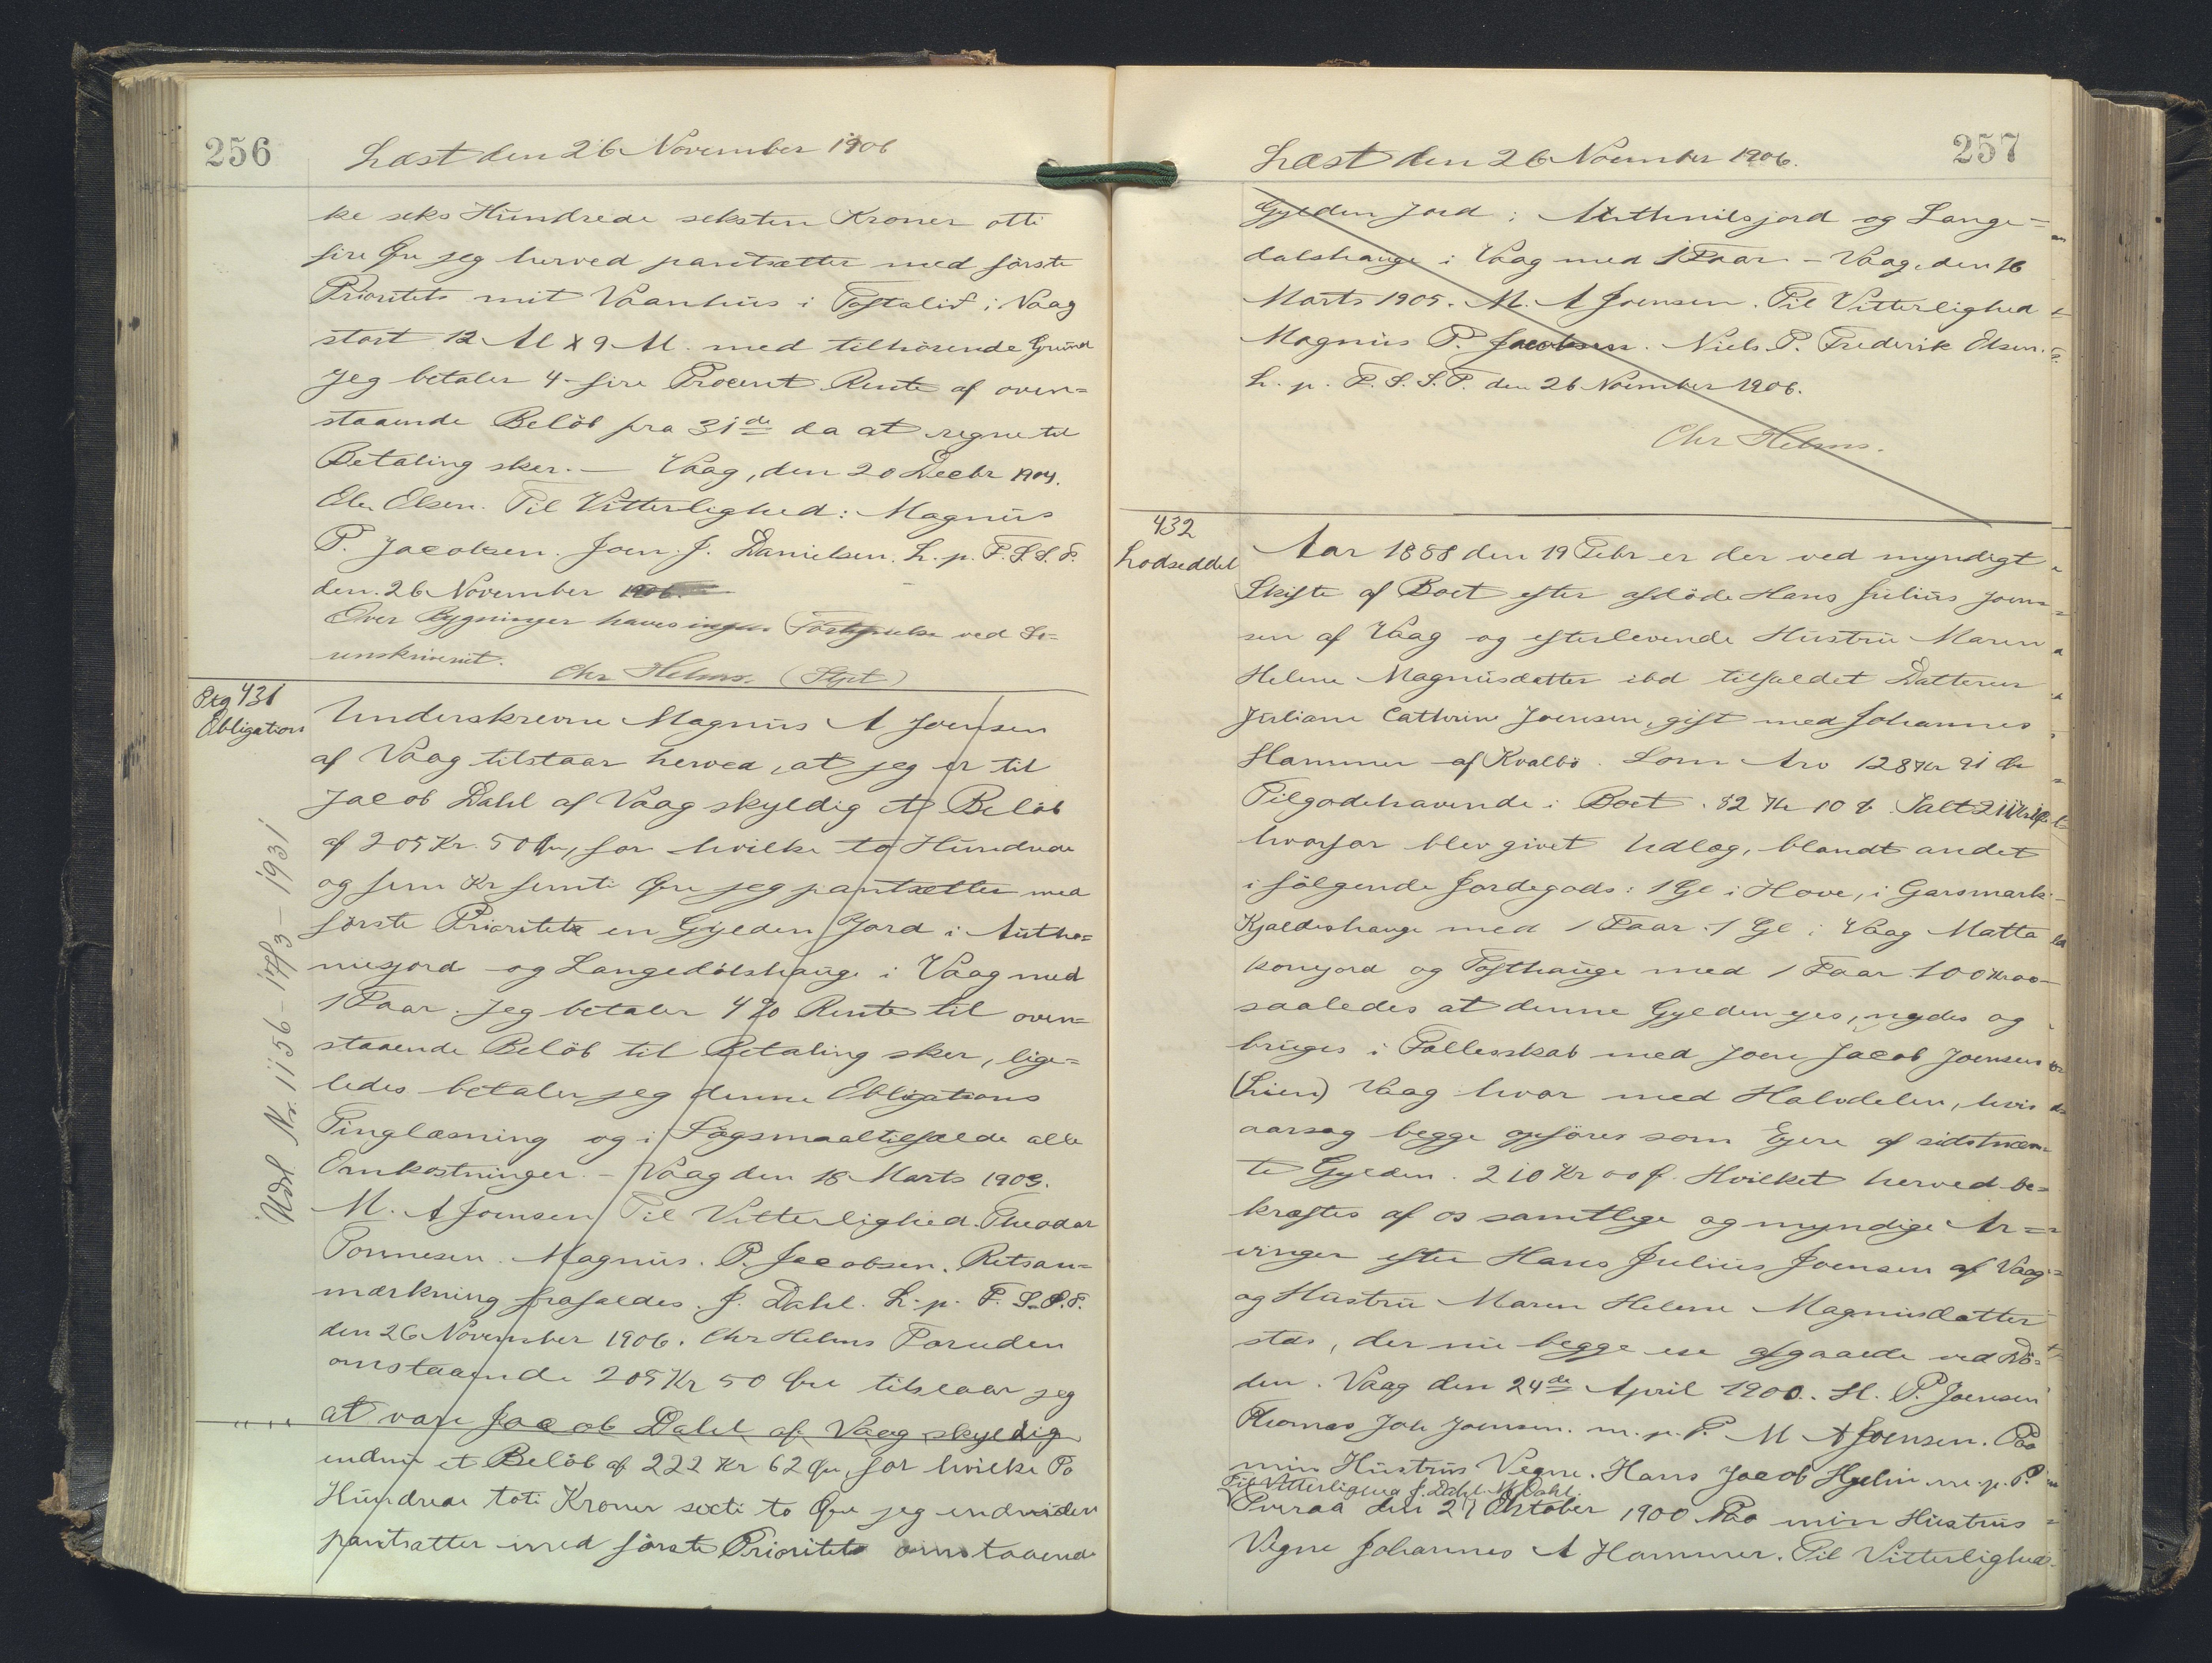 256
Læst den 26 November 1906
ke seks Hundrede seksten Kroner otti
fire Øre jeg herved pantsætter med første
Prioritets mit Vaanhus i Toftalid i Vaag
stort 12 Al x 9 Al. med tilhörende Grund
Jeg betaler 4 - fire Procent Rente af oven=
staaende Belöb fra 31de da at regne til
Betaling sker. — Vaag, den 20 Decbr 1904.
Ole Olsen. Til Vitterlighed: Magnus
P. Jacobsen. Joen. J. Danielsen. L. p. F. S. S. P.
den. 26 November 1906.
Over Bygninger haves ingen ved So=
renskriveriet. Chr Helms. (Stpt)
Prg 431
Obligation
Underskrevne Magnus A Joensen
af Vaag tilstaar herved, at jeg er til
Jacob Dahl af Vaag skyldig et Belöb
af 205 Kr. 50 Øre, for hvilke to Hundrede
og fem Kr femti Øre jeg pantsætter med
förste Prioritets en Gylden Jord i Autho=
niesjord og Langedölshauge i Vaag med
1 Faar. Jeg betaler 4 % Rente til oven=
staaende Belöb til Betaling sker, lige=
ledes betaler jeg denne Obligations
Tinglæsning og i Sögsmaaltilfælde alle
Omkostninger. - Vaag den 18 Marts 1903.
M. A Joensen Til Vitterlighed. Theodor
Ponnesen. Magnus. P. Jacobsen. Retsan=
mærkning frafaldes. J. Dahl. L. p. F. S. S. P.
den 26 November 1906. Chr Helms Foruden
omstaaende 205 Kr 50 Øre tilstaar jeg
at være Jacob Dahl af Vaag skyldig
endnu et Belöb af 222 Kr 62 Øre, for hvilke To
Hundrede toti Kroner sexti to Øre jeg endvidere
pantsatter med förste Prioritets omstaaende
Udsl Nr. 1156 - 17/3 - 1931
257
Læst den 26 November 1906.
Gylden Jord i Authnilsjord og Lange=
dalshauge i Vaag med 1 Faar - Vaag, den 16
Marts 1905. M. A Joensen. Til Vitterlighed
Magnus P. Jacobsen. Niels. P. Frederik Olsen.
L. p. F. S. S. P. den 26 November 1906.
Chr Helms.
432
Lodseddel
Aar 1888 den 19 Febr er der ved myndigt
Skifte af Boet efter afdöde Hans Julius Joen=
sen af Vaag og efterlevende Hustru Maren
Helene Magnusdatter ibd tilfaldet Datteren
Juliane Cathrine Joensen, gift med Johannes
Hammer af Kvalbö. Som Arv 128 Kr 91 Øre
Tilgodehavende i Boet. 82 Kr 10 Ø. Ialt 211 Kr 1 Ø
hvorfor blev givet Udlæg, blandt andet
i fölgende Jordegods: 1 Gl i Hove, i Garsmark
Kjaldeshauge med 1 Faar. 1 Gl i Vaag Matta
konejord og Tofthauge med 1 Faar 100 Kr 00
saaledes at denne Gylden ejes, nydes og
bruges i Fællesskab med Joen Jacob Joensen
(Lien) Vaag hver med Halvdelen, hvis
aarsag begge opföres som Ejere af sidstnæn=
te Gylden. 210 Kr 00 Ø. Hvilket herved be=
kræftes af os samtlige og myndige Ar=
vinger efter Hans Julius Joensen af Vaag
og Hustru Maren Helene Magnusdatter
stds, der nu begge ere afgaaede ved Dö=
den. Vaag den 24de April 1900. H. P. Joensen
Thomas Joh Joensen. m. p. P. M A Joensen. Paa
min Hustrus Vegne. Hans Jacob Hjelm m. p. P.
Til Vitterlighed J. Dahl. M. Dahl.
Sveraa den 27 Oktober 1900 Paa min Hustrus
Vegne Johannes A Hammer. Til Vitterlighed